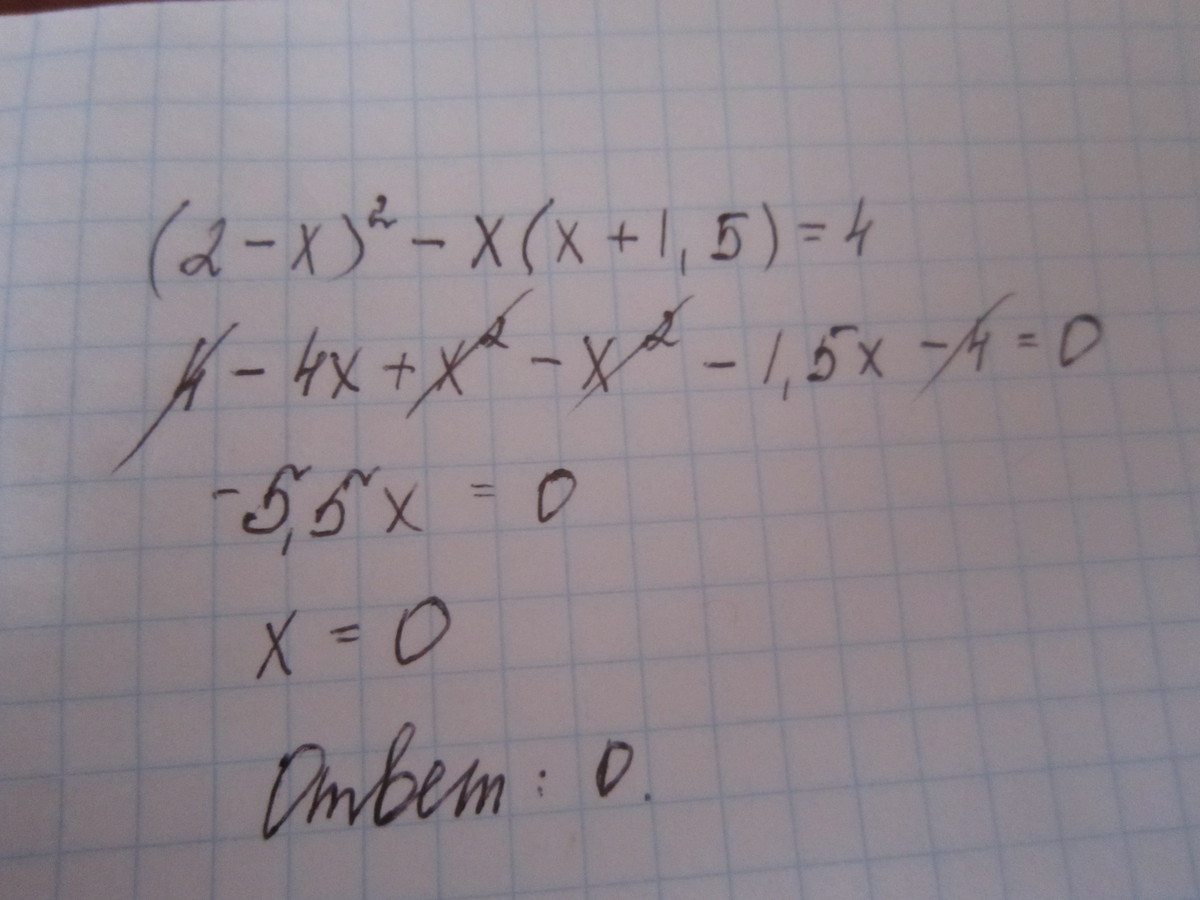 (2-x)² - x(x+1,5)=4
4 - 4x + x² - x² - 1,5x - 4 = 0
-5,5x = 0
x = 0
Ответ: 0.